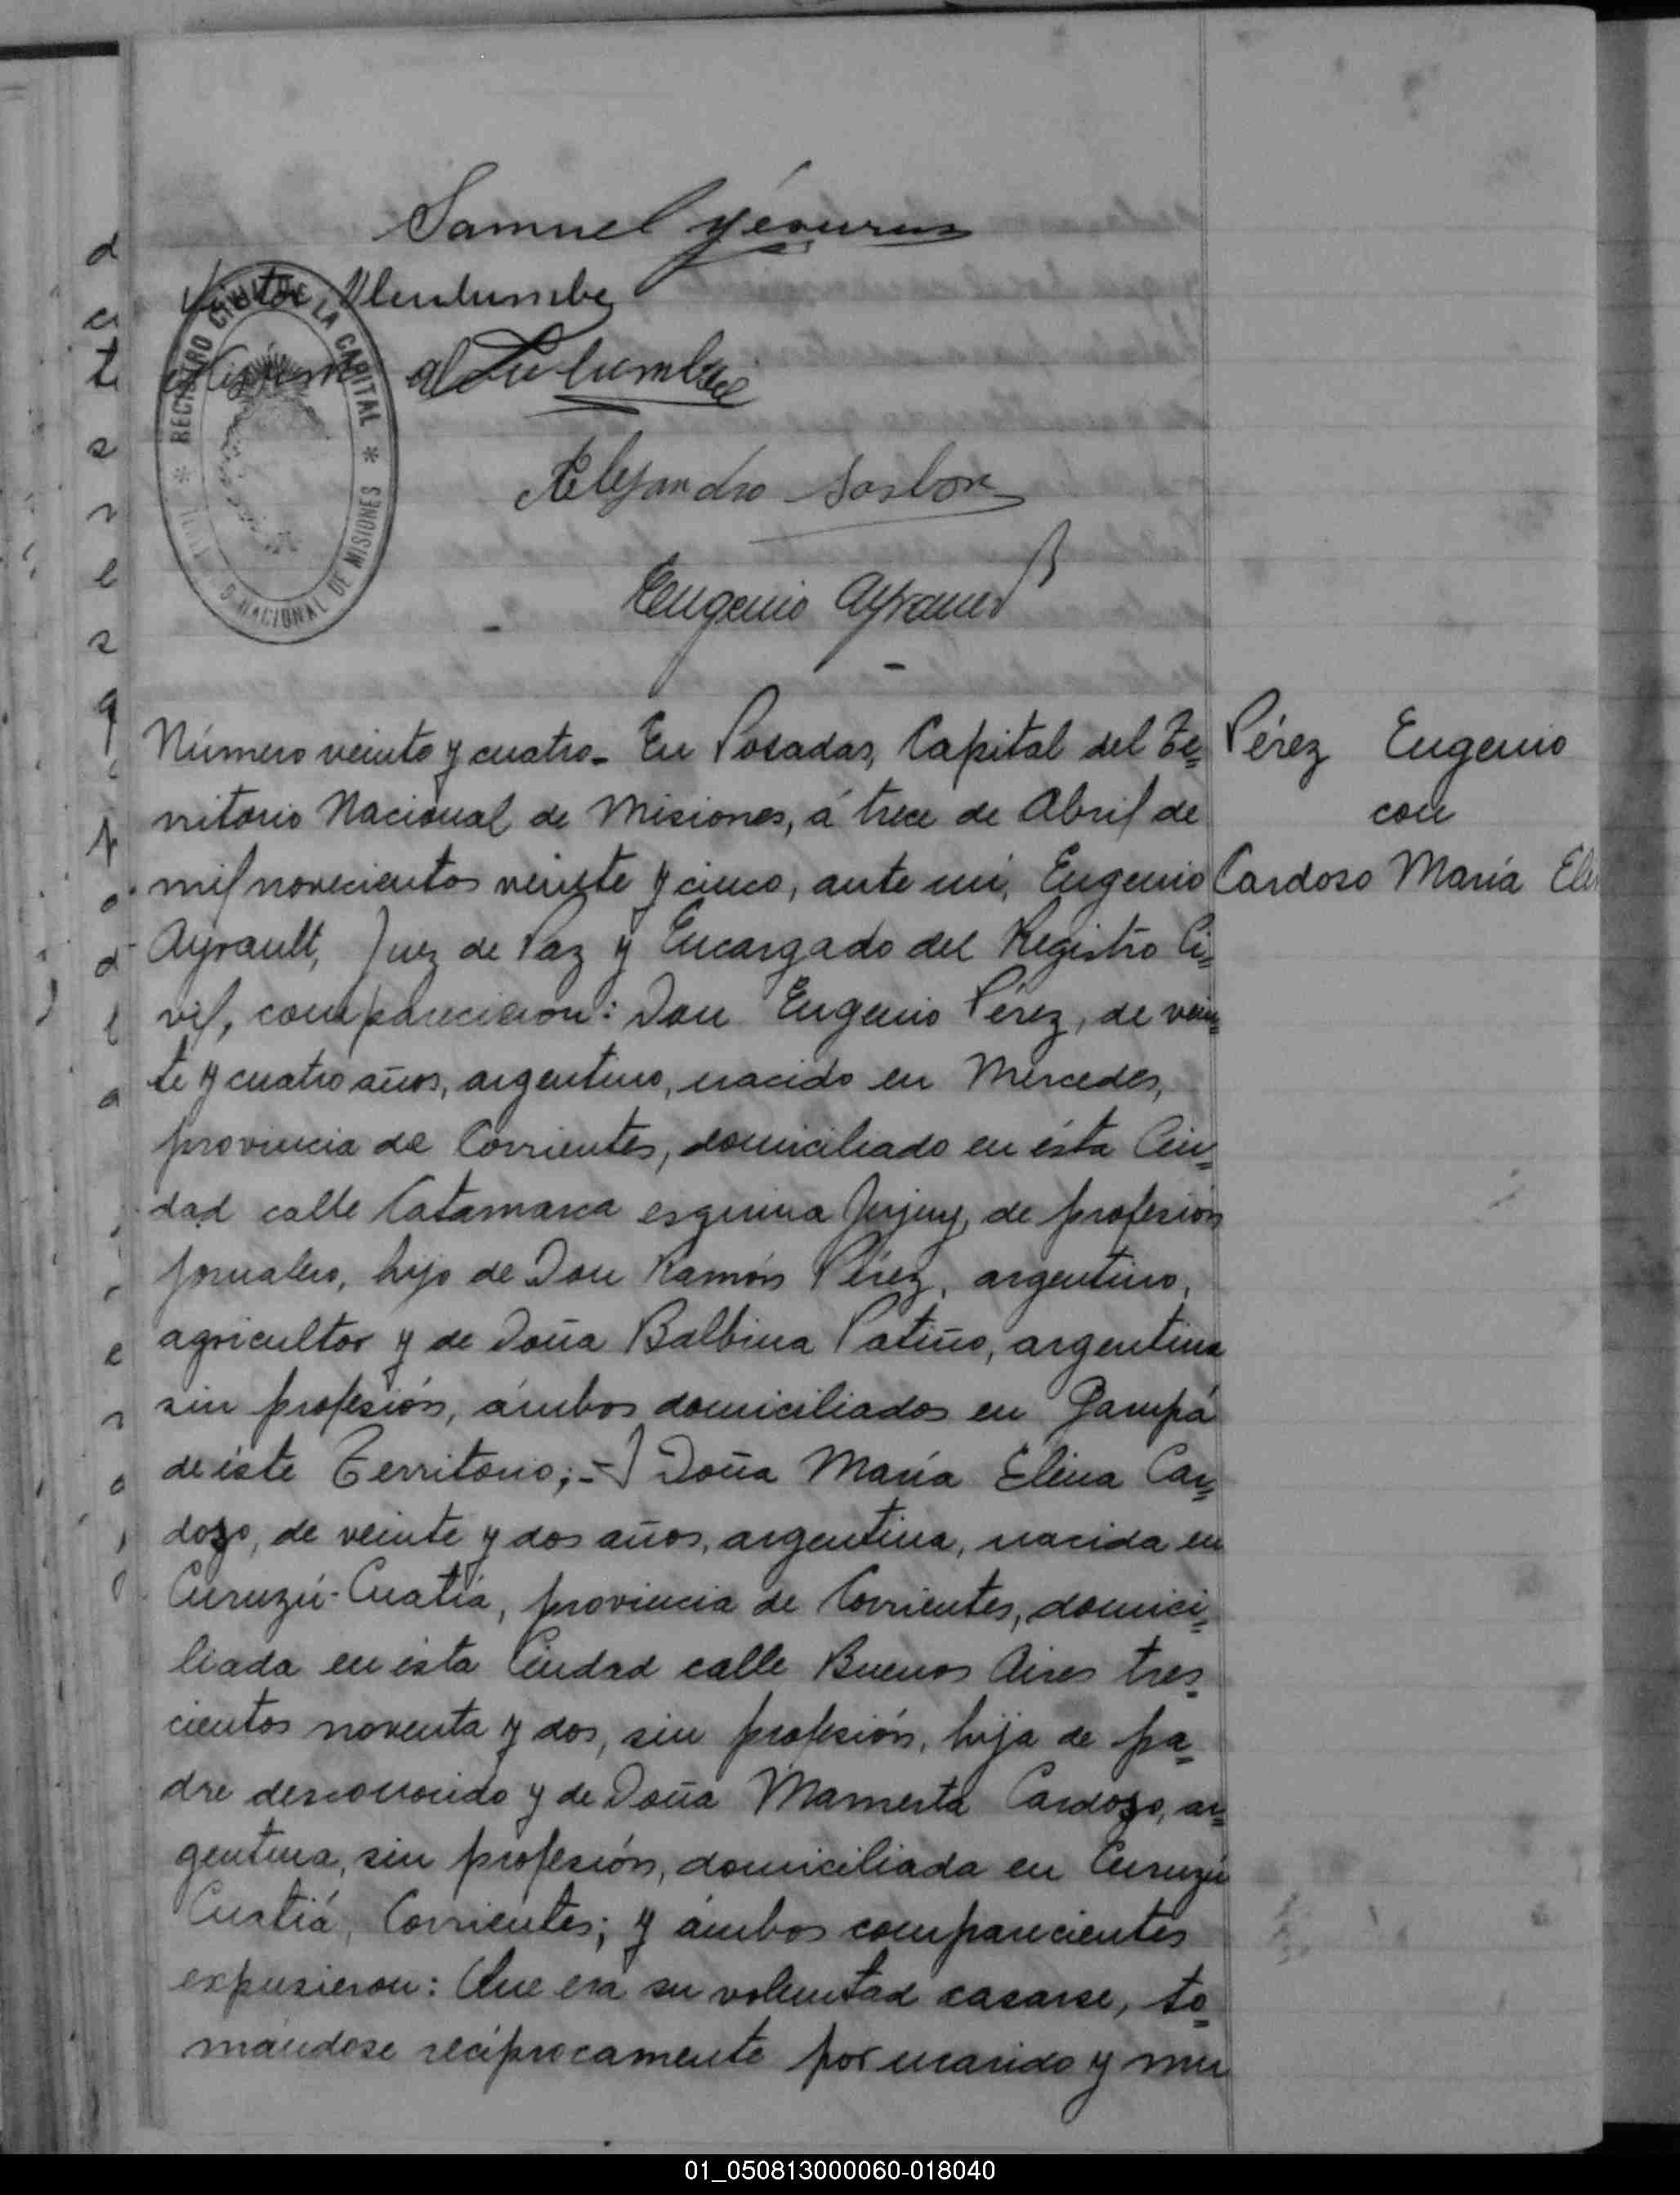 Samuel
Victor
Alejandro
Eugenio Ayrault
REGISTRO CIVIL DE LA CAPITAL * NACIONAL DE MISIONES *
Número veinte y cuatro.- En Posadas, Capital del Te=
rritorio Nacional de Misiones, á trece de Abril de
mil novecientos veinte y cinco, ante mí, Eugenio
Ayrault, Juez de Paz y Encargado del Registro Ci=
vil, comparecieron: Don Eugenio Pérez, de vein=
te y cuatro años, argentino, nacido en Mercedes,
provincia de Corrientes, domiciliado en ésta Ciu=
dad calle Catamarca esquina Jujuy, de profesión
jornalero, hijo de Don Ramón Pérez, argentino,
agricultor y de Doña Balbina Patiño, argentina
sin profesión, ámbos domiciliados en Garupá
de éste Territorio;- Doña María Elina Car=
dozo, de veinte y dos años, argentina, nacida en
Curuzú-Cuatiá, provincia de Corrientes, domici=
liada en ésta Ciudad calle Buenos Aires tres=
cientos noventa y dos, sin profesión, hija de pa=
dre desconocido y de Doña Mamerta Cardozo, ar=
gentina, sin profesión, domiciliada en Curuzú
Cuatiá, Corrientes; y ámbos comparecientes
expusieron: Que era su voluntad casarse, to=
mándose recíprocamente por marido y mu
Pérez Eugenio
con
Cardoso María
01_050813000060-018040